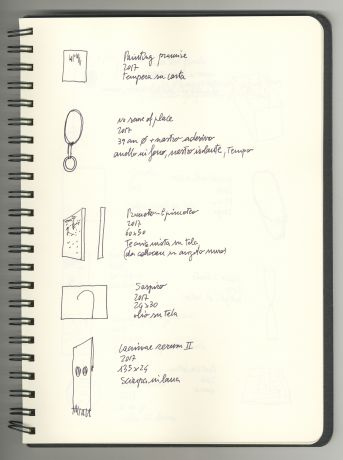 Painting promise
2017
tempera su carta
no sense of place
2017
39 cm ø nastro adesivo
anello in ferro, nastro isolante, Tempo
Prometeo-Epimeteo
2017
60x50
Tecnica mista su tela
(da collocare in angolo muro)
Sospiro
2017
24x30
olio su tela
Lacrimae rerum II
2017
135x24
Sciarpa in lana